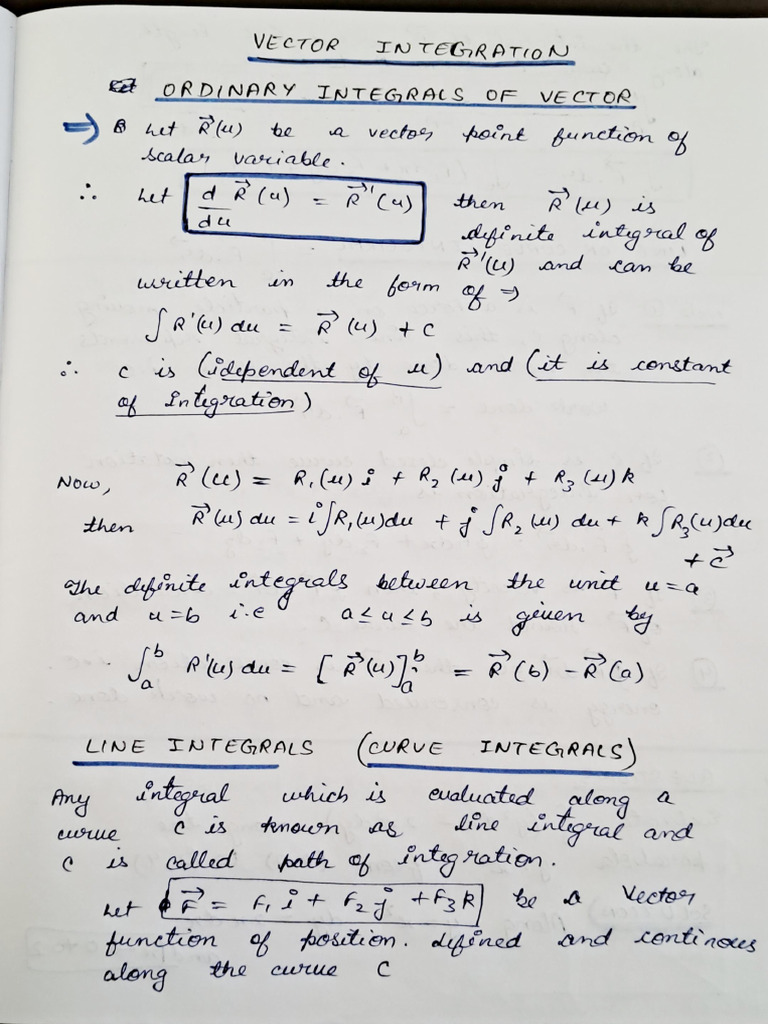 VECTOR INTEGRATION
ORDINARY INTEGRALS OF VECTOR
⇒ Let R⃗(u) be a vector point function of
scalar variable.
∴ Let d/du R⃗(u) = R⃗'(u) then R⃗(u) is
definite integral of
R⃗'(u) and can be
written in the form of ⇒
∫R'(u) du = R⃗(u) + c
∴ c is (idependent of u) and (it is constant
of integration)
Now, R⃗(u) = R₁(u) i + R₂(u) j + R₃(u) k
then R⃗(u) du = i∫R₁(u)du + j∫R₂(u) du + k∫R₃(u)du
+ c⃗
The definite integrals between the unit u=a
and u=b i.e a≤u≤b is given by
∫ₐᵇ R'(u) du = [R⃗(u)]ₐᵇ = R⃗(b) - R⃗(a)
LINE INTEGRALS (CURVE INTEGRALS)
Any integral which is evaluated along a
curve c is known as line integral and
c is called path of integration.
Let F⃗ = F₁ i + F₂ j + F₃ k be a vector
function of position. defined and continous
along the curve C